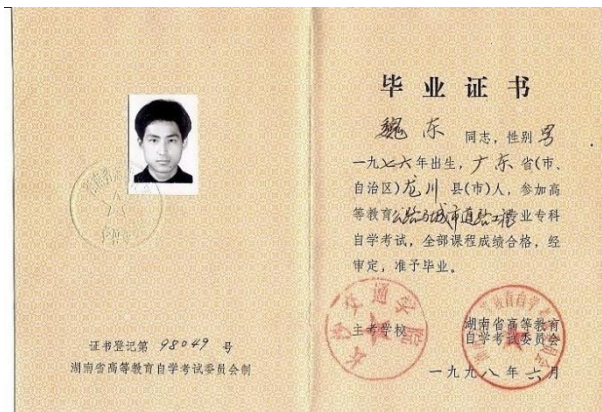 证书登记第 98049 号
湖南省高等教育自学考试委员会制
毕业证书
魏东 同志,性别 男
一九七六年出生,广东省(市、
自治区)龙川县(市)人,参加高
等教育公路与城市道路工程专业专科
自学考试,全部课程成绩合格,经
审定,准予毕业。
长沙交通学院
主考学校
湖南省高等教育
自学考试委员会
一九九八年六月